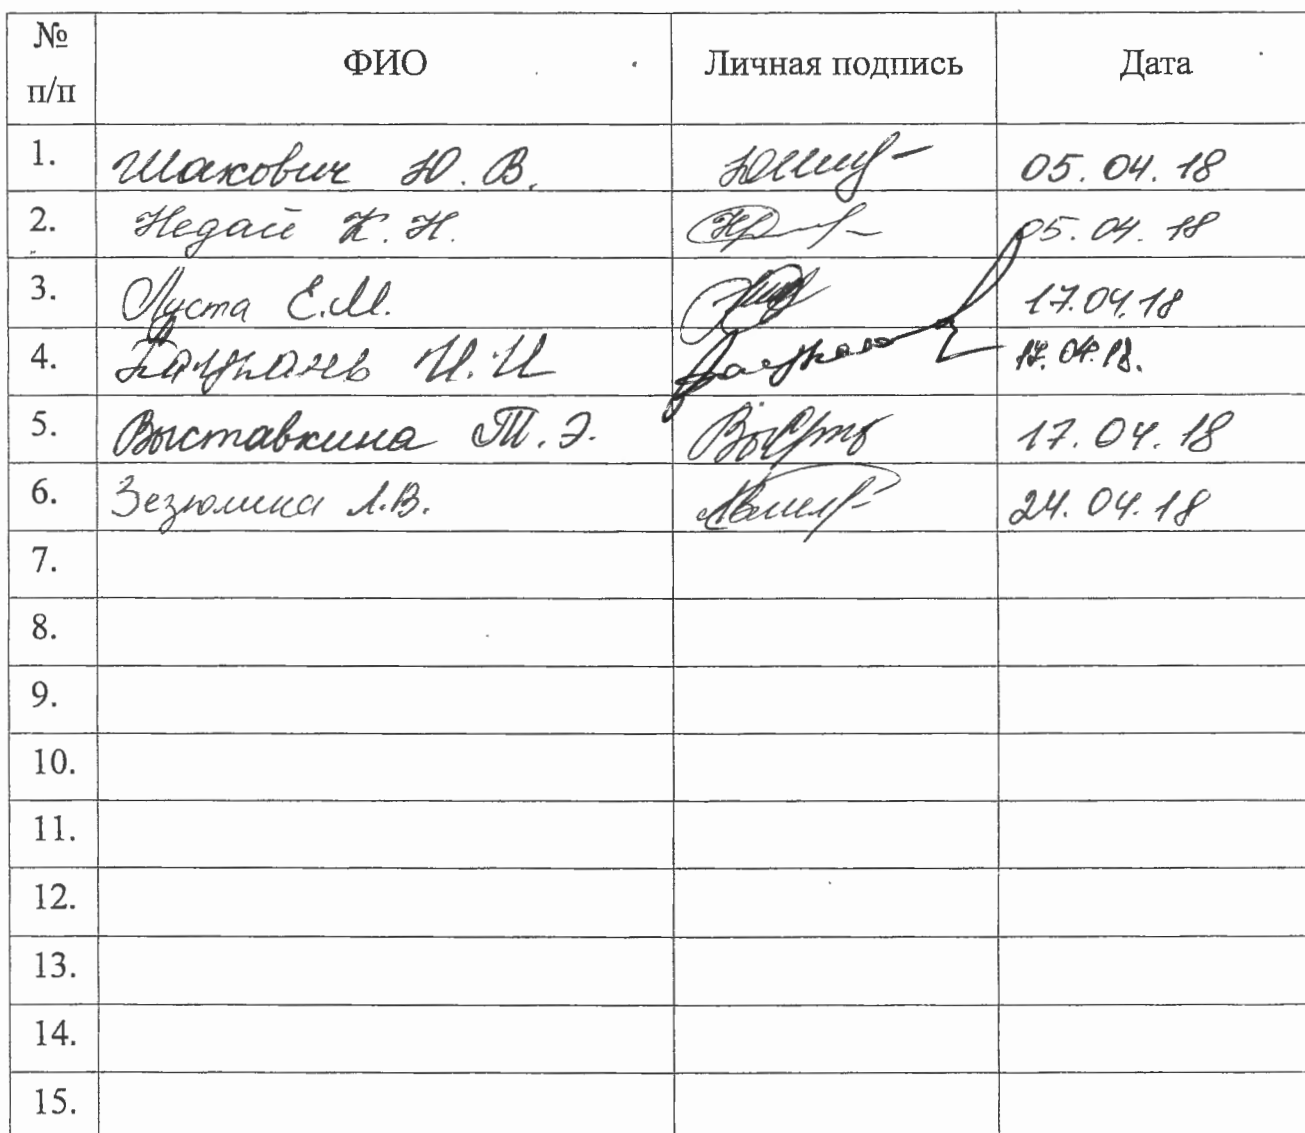 № п/п ФИО Личная подпись Дата
1. Шакович Ю. В. 05. 04. 18
2. Недай К. Н. 05. 04. 18
3. Луста Е.М. 17.04.18
4. И.И 17.04.18.
5. Выставкина Т. Э. 17. 04. 18
6. Зезюлина Л.В. 24. 04. 18
7.
8.
9.
10.
11.
12.
13.
14.
15.